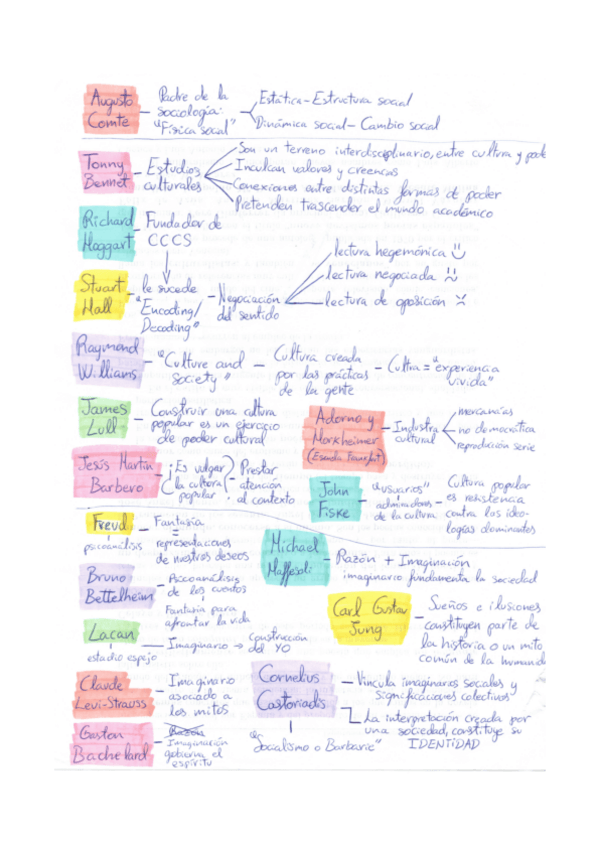 Augusto
Comte
Padre de la
sociología:
"Física social"
Estática - Estructura social
Dinámica social - Cambio social
Tonny
Bennet
Estudios
culturales
Son un terreno interdisciplinario, entre cultura y pode
Inculcan valores y creencias
Conexiones entre distintas formas de poder
Pretenden trascender el mundo académico
Richard
Hoggart
Fundador de
CCCS
Stuart
Hall
le sucede
"Encoding/
Decoding"
Negociación
del sentido
lectura hegemónica
lectura negociada
lectura de oposición
Raymond
Williams
"Culture and
society"
Cultura creada
por las prácticas
de la gente
Cultra = "experiencia
vivida"
James
Lull
Construir una cltura
popular es un ejercicio
de poder cultural
Adorno y
Horkheimer
(Escuela Frankfurt)
Industria
cultural
mercancías
no democrática
reproducción serie
Jesús Martín
Barbero
¿Es vulgar
la cultura
popular?
Prestar
atención
al contexto
John
Fiske
"usuarios"
admiradores
de la cultura
Cultura popular
es resistencia
contra las ideo-
logías dominantes
Freud
psicoanálisis
Fantasía
=
representaciones
de nuestros deseos
Michael
Maffesoli
Razón + Imaginación
imaginario fundamenta la sociedad
Bruno
Bettelheim
Psicoanálisis
de los cuentos
Fantasía para
afrontar la vida
Carl Gustav
Jung
Sueños e ilusiones
constituyen parte de
la historia o un mito
común de la humanida
Lacan
estadio espejo
Imaginario → Construcción
del YO
Claude
Levi-Strauss
Imaginario
asociado a
los mitos
Cornelius
Castoriadis
Vincula imaginarios sociales y
significaciones colectivas
La interpretación creada por
una sociedad, constituye su
IDENTIDAD
"Socialismo o Barbarie"
Gaston
Bachelard
Razón
Imaginación
gobierna el
espíritu